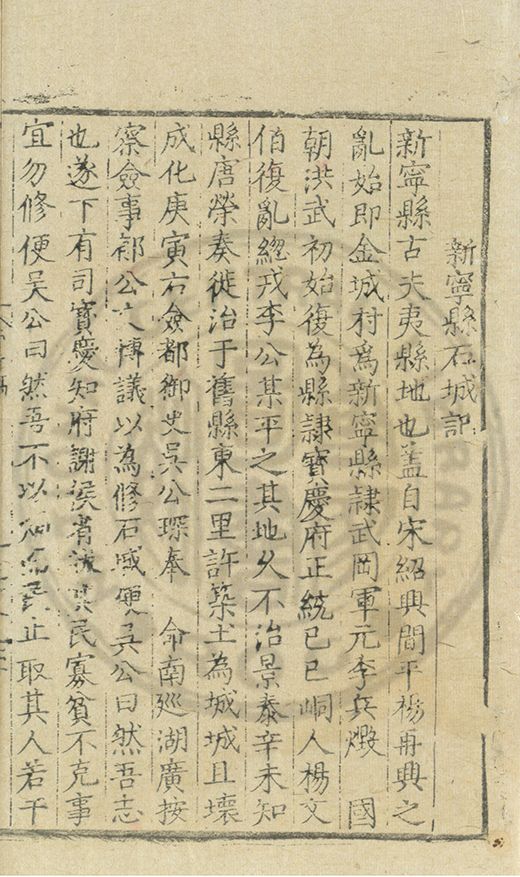 新寧縣石城記
新寧縣古夫夷縣地也盖自宋紹興間平楊再興之
亂始即金城村爲新寧縣隷武岡軍元季兵燬　國
朝洪武初始復為縣隷寳慶府正統已巳峒人楊文
伯復亂緫戎李公某平之其地久不治景泰辛未知
縣唐榮奏徙治于舊縣東二里許築土為城城且壊
成化庚寅右僉都御史吳公琛奉　命南廵湖廣按
察僉事郤公文博議以為修石城便吳公曰然吾志
也遂下有司寳慶知府謝侯省 其民寡貧不克事
宜勿修便吳公曰然吾不以 民止取其人若干